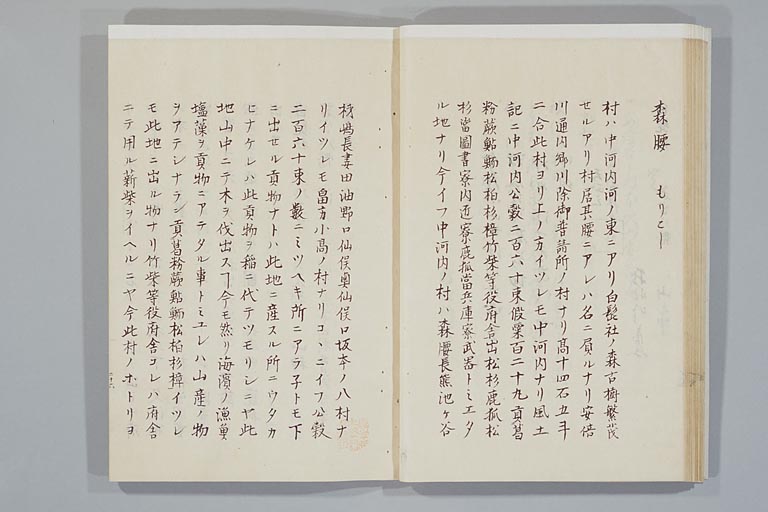 森腰 もりこし
村ハ中河内河ノ東ニアリ白髭社ノ森古樹繁茂
セルアリ村居其腰ニアレハ名ニ負ルナリ安倍
川通内郷川除御普請所ノ村ナリ高十四石五斗
二合此村ヨリ上ノ方イツレモ中河内ナリ風土
記ニ中河内公穀二百六十束假粟百二十九貢葛
粉蕨鮎鰤松柏杉樟竹柴等役府舎出松杉鹿狐松
杉當圖書寮内匠寮鹿狐當兵庫寮武器トミエタ
ル地ナリ今イフ中河内ノ村ハ森腰長熊池ヶ谷
柿嶋長妻田油野口仙俣奥仙俣口坂本ノ八村ナ
リイツレモ畠方小高ノ村ナリコヽニイフ公穀
二百六十束ノ数ニミツヘキ所ニアラ子トモ下
ニ出セル貢物ナトハ此地ニ産スル所ニウタカ
ヒナケレハ此貢物ヲ稲ニ代テツモリシニヤ此
地山中ニテ木ヲ伐出スヿ今モ然リ海濱ノ漁魚
塩藻ヲ貢物ニアテタル事トミユレハ山産ノ物
ヲアテシナラン貢葛粉蕨鮎鰤松柏杉樟イツレ
モ此地ニ出ル物ナリ竹柴等役府舎コレハ府舎
ニテ用ル薪柴ヲイヘルニヤ今此村ノホトリヨ